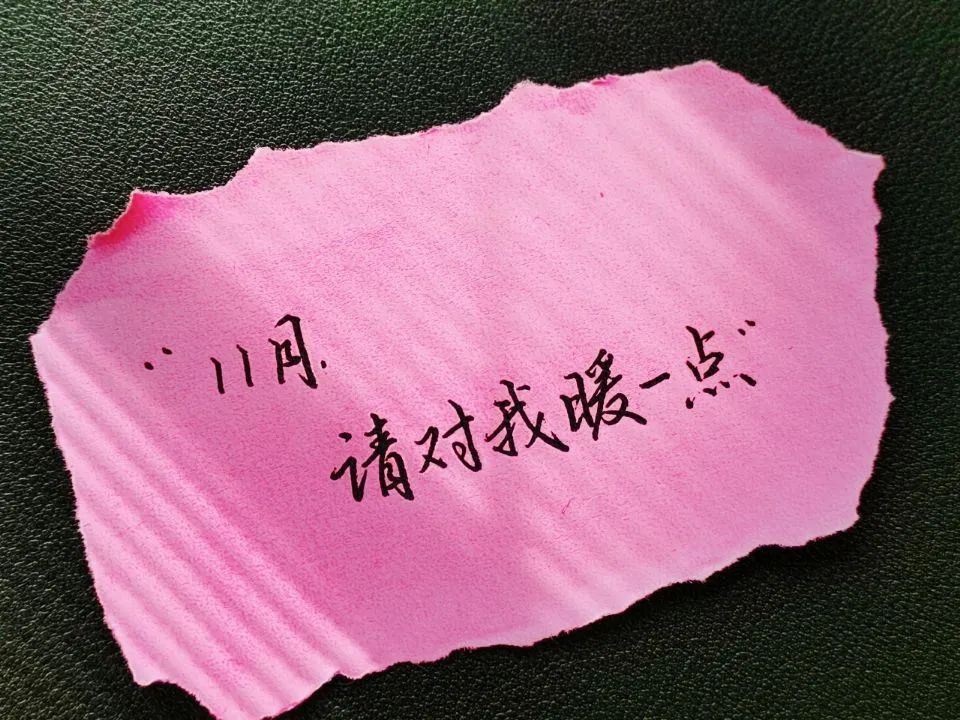 “11月.
请对我暖一点”